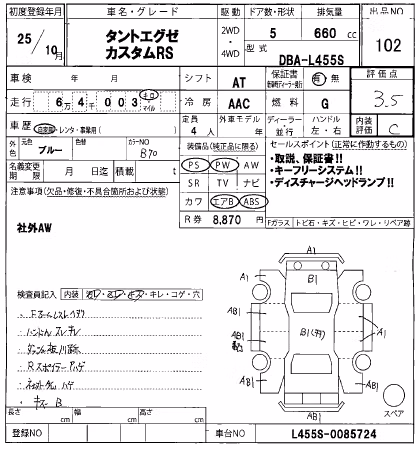 初度登録年月
車名・グレード
駆動
ドア数・形状
排気量
出品NO
25/10月
タントエグゼ
カスタムRS
2WD・4WD
5
660 cc
102
型式
DBA-L455S
車検 年 月
シフト
AT
保証書
有 無
評価点
3.5
走行 6万4千003 キロ マイル
冷房
AAC
燃料
G
車歴 自家用・レンタ・事業用( )
定員
4人
外車モデル 年
ディーラー・並行
ハンドル
左・右
内装評価
C
外色
元色
ブルー
色替
カラーNO
B70
装備品(純正品に限る)
PS PW AW
SR TV ナビ
カワ エアB ABS
セールスポイント(正常に作動するもの)
・取説、保証書!!
・キーフリーシステム!!
・ディスチャージヘッドランプ!!
名義変更期限 月 日迄
積載 t
注意事項(欠品・修復・不具合箇所および状態)
社外AW
R券 8,870 円
Fガラス トビ石・キズ・ヒビ・ワレ・リペア跡
検査員記入 内装 汚レ・コレ・キズ・キレ・コゲ・穴
A1
A1
B1
A1
AB1
A1
AB1
B1
A1
AB1
AB1
AB1
スペア
長さ cm
幅 cm
高さ cm
登録NO
車台NO
L455S-0085724